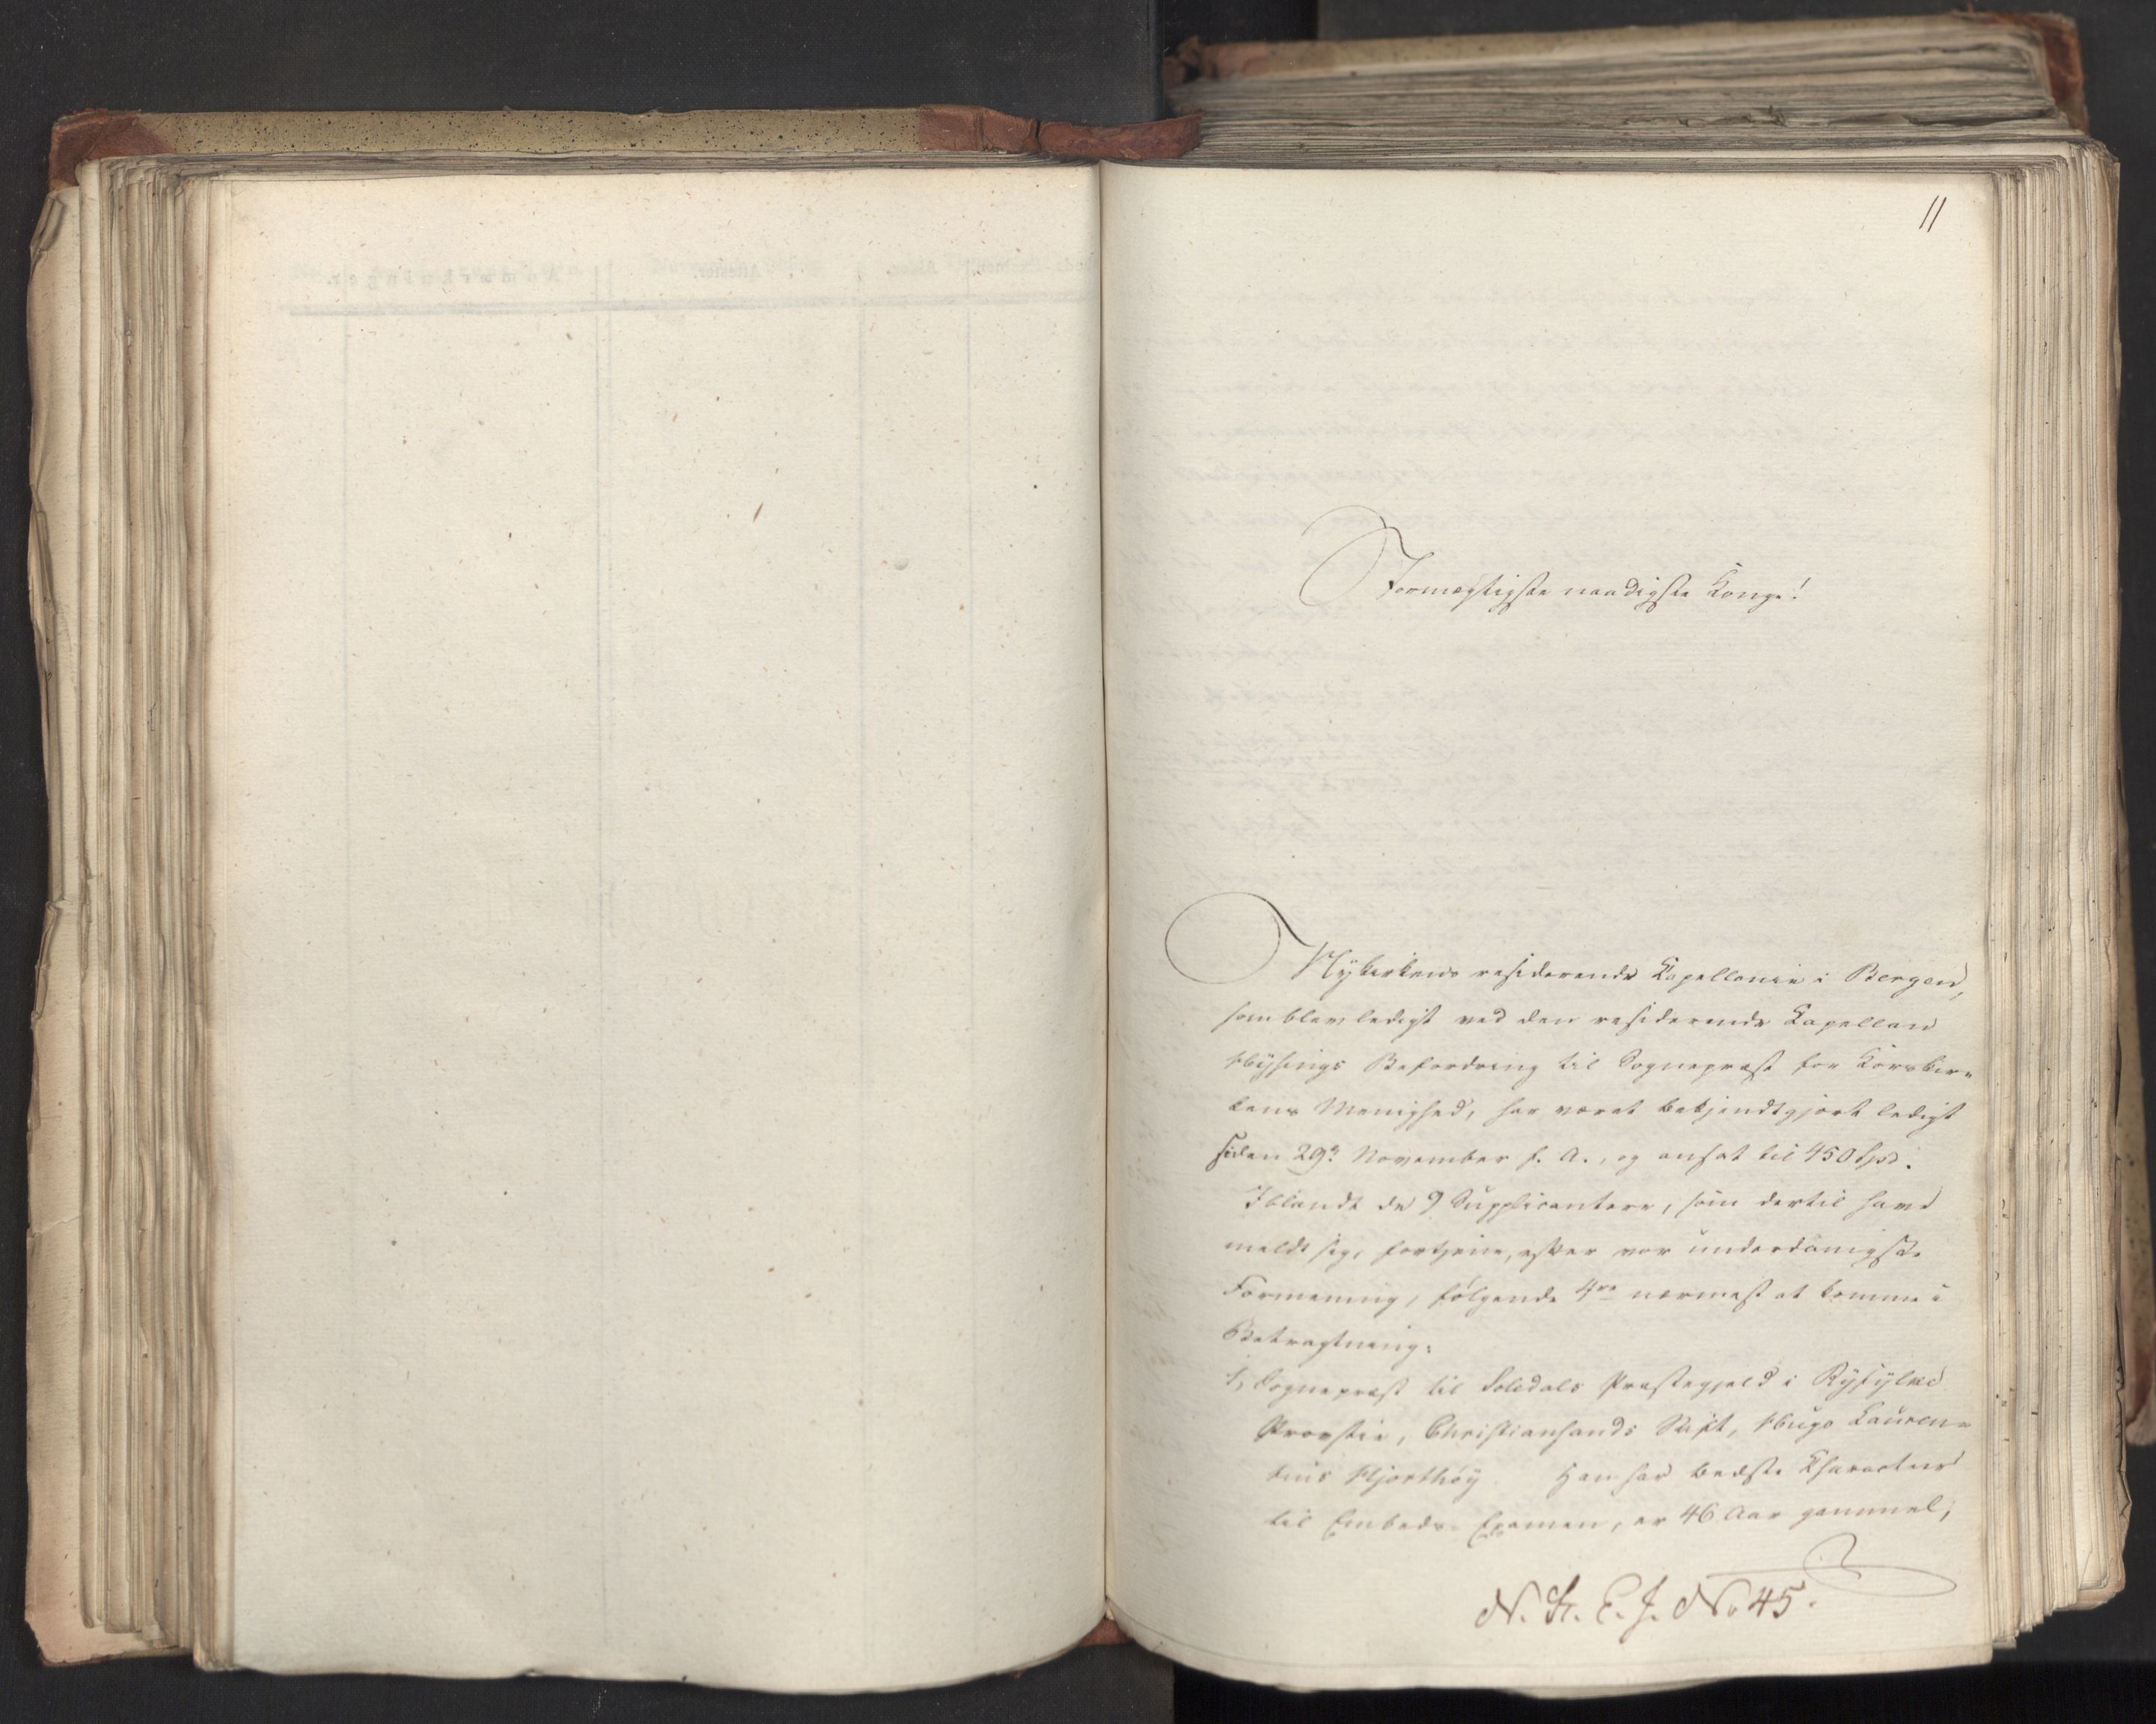 11
Stormægtigste naadigste Konge!
Nykirkens residerende Kapellanie i Bergen,
som blev ledigt ved den residerende Kapellan
Hysings Befordring til Sognepræst for Korskir-
kens Menighed, har været bekjendtgjort ledigt
siden 29de November f. A., og ansat til 450 Spd.
Iblandt de 9 Supplicantere, som dertil have
meldt sig, fortjene, efter vor underdanigste
Formening, følgende 4re nærmest at komme i
Betragtning:
1, Sognepræst til Soledals Præstegjeld i Ryfylke
Provstie, Christiansands Stift, Hugo Lauren-
tius Hjorthøy. Han har bedste Charakteer
til Embeds-Examen, er 46 Aar gammel,
N. St. E. J. No 45.